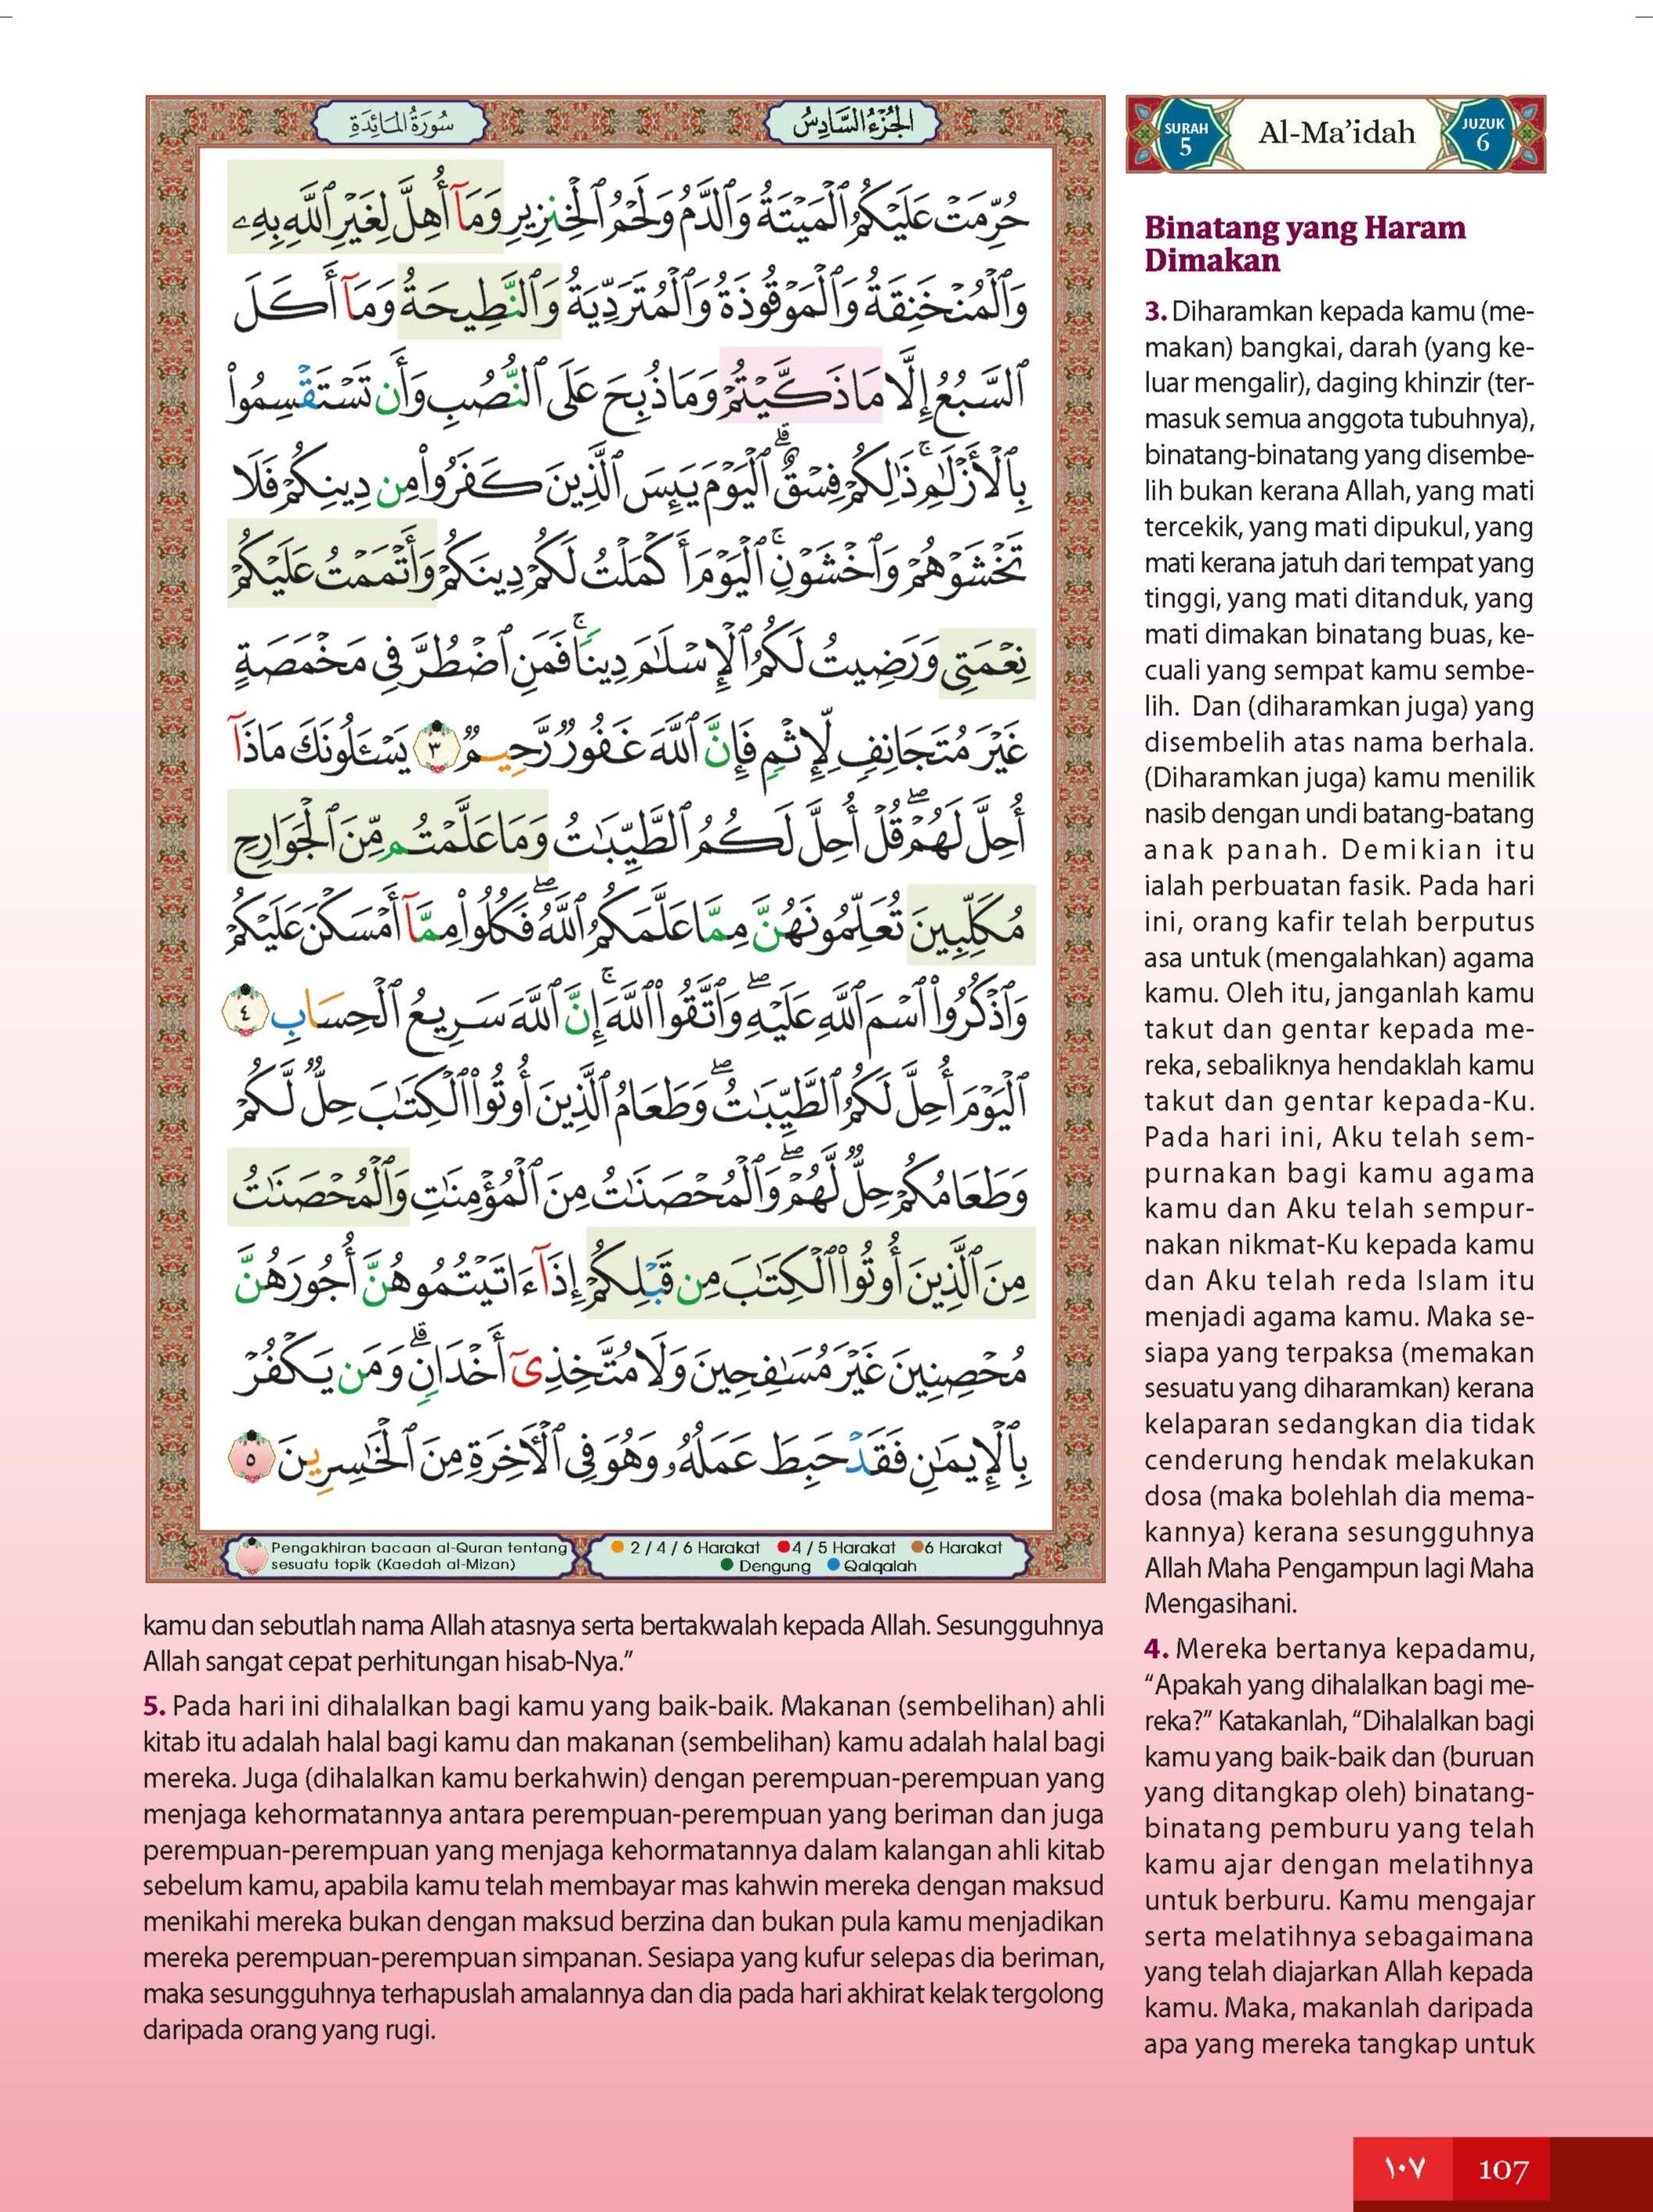 سُورَةُ المَائِدَةِ
الجُزْءُ السَّادِسُ
حُرِّمَتْ عَلَيْكُمُ ٱلْمَيْتَةُ وَٱلدَّمُ وَلَحْمُ ٱلْخِنزِيرِ وَمَآ أُهِلَّ لِغَيْرِ ٱللَّهِ بِهِۦ
وَٱلْمُنْخَنِقَةُ وَٱلْمَوْقُوذَةُ وَٱلْمُتَرَدِّيَةُ وَٱلنَّطِيحَةُ وَمَآ أَكَلَ
ٱلسَّبُعُ إِلَّا مَا ذَكَّيْتُمْ وَمَا ذُبِحَ عَلَى ٱلنُّصُبِ وَأَن تَسْتَقْسِمُوا۟
بِٱلْأَزْلَـٰمِ ۚ ذَٰلِكُمْ فِسْقٌ ۗ ٱلْيَوْمَ يَئِسَ ٱلَّذِينَ كَفَرُوا۟ مِن دِينِكُمْ فَلَا
تَخْشَوْهُمْ وَٱخْشَوْنِ ۚ ٱلْيَوْمَ أَكْمَلْتُ لَكُمْ دِينَكُمْ وَأَتْمَمْتُ عَلَيْكُمْ
نِعْمَتِى وَرَضِيتُ لَكُمُ ٱلْإِسْلَـٰمَ دِينًا ۚ فَمَنِ ٱضْطُرَّ فِى مَخْمَصَةٍ
غَيْرَ مُتَجَانِفٍ لِّإِثْمٍ فَإِنَّ ٱللَّهَ غَفُورٌ رَّحِيمٌ ٣ يَسْـَٔلُونَكَ مَاذَآ
أُحِلَّ لَهُمْ ۖ قُلْ أُحِلَّ لَكُمُ ٱلطَّيِّبَـٰتُ وَمَا عَلَّمْتُم مِّنَ ٱلْجَوَارِحِ
مُكَلِّبِينَ تُعَلِّمُونَهُنَّ مِمَّا عَلَّمَكُمُ ٱللَّهُ ۖ فَكُلُوا۟ مِمَّآ أَمْسَكْنَ عَلَيْكُمْ
وَٱذْكُرُوا۟ ٱسْمَ ٱللَّهِ عَلَيْهِ ۖ وَٱتَّقُوا۟ ٱللَّهَ ۚ إِنَّ ٱللَّهَ سَرِيعُ ٱلْحِسَابِ ٤
ٱلْيَوْمَ أُحِلَّ لَكُمُ ٱلطَّيِّبَـٰتُ ۖ وَطَعَامُ ٱلَّذِينَ أُوتُوا۟ ٱلْكِتَـٰبَ حِلٌّ لَّكُمْ
وَطَعَامُكُمْ حِلٌّ لَّهُمْ ۖ وَٱلْمُحْصَنَـٰتُ مِنَ ٱلْمُؤْمِنَـٰتِ وَٱلْمُحْصَنَـٰتُ
مِنَ ٱلَّذِينَ أُوتُوا۟ ٱلْكِتَـٰبَ مِن قَبْلِكُمْ إِذَآ ءَاتَيْتُمُوهُنَّ أُجُورَهُنَّ
مُحْصِنِينَ غَيْرَ مُسَـٰفِحِينَ وَلَا مُتَّخِذِىٓ أَخْدَانٍ ۗ وَمَن يَكْفُرْ
بِٱلْإِيمَـٰنِ فَقَدْ حَبِطَ عَمَلُهُۥ وَهُوَ فِى ٱلْـَٔاخِرَةِ مِنَ ٱلْخَـٰسِرِينَ ٥
Pengakhiran bacaan al-Quran tentang
sesuatu topik (Kaedah al-Mizan)
2 / 4 / 6 Harakat 4 / 5 Harakat 6 Harakat
Dengung Qalqalah
SURAH 5
Al-Ma’idah
JUZUK 6
Binatang yang Haram
Dimakan
3. Diharamkan kepada kamu (me-
makan) bangkai, darah (yang ke-
luar mengalir), daging khinzir (ter-
masuk semua anggota tubuhnya),
binatang-binatang yang disembe-
lih bukan kerana Allah, yang mati
tercekik, yang mati dipukul, yang
mati kerana jatuh dari tempat yang
tinggi, yang mati ditanduk, yang
mati dimakan binatang buas, ke-
cuali yang sempat kamu sembe-
lih. Dan (diharamkan juga) yang
disembelih atas nama berhala.
(Diharamkan juga) kamu menilik
nasib dengan undi batang-batang
anak panah. Demikian itu
ialah perbuatan fasik. Pada hari
ini, orang kafir telah berputus
asa untuk (mengalahkan) agama
kamu. Oleh itu, janganlah kamu
takut dan gentar kepada me-
reka, sebaliknya hendaklah kamu
takut dan gentar kepada-Ku.
Pada hari ini, Aku telah sem-
purnakan bagi kamu agama
kamu dan Aku telah sempur-
nakan nikmat-Ku kepada kamu
dan Aku telah reda Islam itu
menjadi agama kamu. Maka se-
siapa yang terpaksa (memakan
sesuatu yang diharamkan) kerana
kelaparan sedangkan dia tidak
cenderung hendak melakukan
dosa (maka bolehlah dia mema-
kannya) kerana sesungguhnya
Allah Maha Pengampun lagi Maha
Mengasihani.
4. Mereka bertanya kepadamu,
“Apakah yang dihalalkan bagi me-
reka?” Katakanlah, “Dihalalkan bagi
kamu yang baik-baik dan (buruan
yang ditangkap oleh) binatang-
binatang pemburu yang telah
kamu ajar dengan melatihnya
untuk berburu. Kamu mengajar
serta melatihnya sebagaimana
yang telah diajarkan Allah kepada
kamu. Maka, makanlah daripada
apa yang mereka tangkap untuk
kamu dan sebutlah nama Allah atasnya serta bertakwalah kepada Allah. Sesungguhnya
Allah sangat cepat perhitungan hisab-Nya.”
5. Pada hari ini dihalalkan bagi kamu yang baik-baik. Makanan (sembelihan) ahli
kitab itu adalah halal bagi kamu dan makanan (sembelihan) kamu adalah halal bagi
mereka. Juga (dihalalkan kamu berkahwin) dengan perempuan-perempuan yang
menjaga kehormatannya antara perempuan-perempuan yang beriman dan juga
perempuan-perempuan yang menjaga kehormatannya dalam kalangan ahli kitab
sebelum kamu, apabila kamu telah membayar mas kahwin mereka dengan maksud
menikahi mereka bukan dengan maksud berzina dan bukan pula kamu menjadikan
mereka perempuan-perempuan simpanan. Sesiapa yang kufur selepas dia beriman,
maka sesungguhnya terhapuslah amalannya dan dia pada hari akhirat kelak tergolong
daripada orang yang rugi.
١٠٧ 107